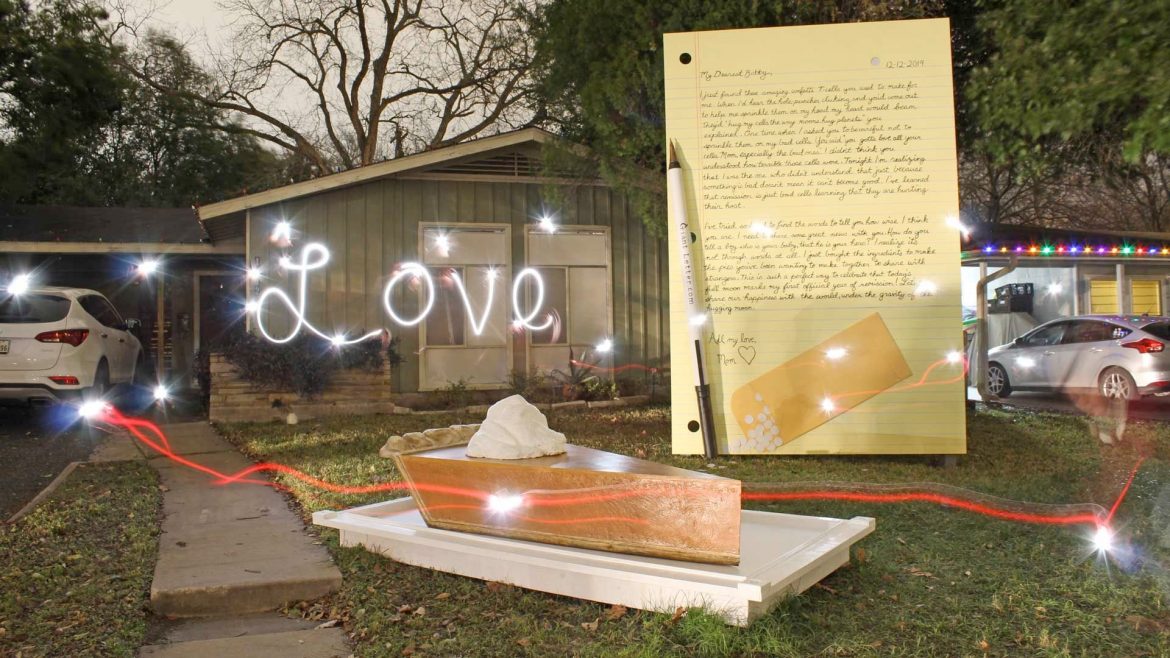 Love
12-12-2019
My Dearest Bobby,
I just found these amazing confetti T-cells you used to make for
me. When I'd hear the hole puncher clicking and you'd come out
to help me sprinkle them on my head my heart would beam
they'd "hug my cells the way moons hug planets" you
explained. One time when I asked you to be careful not to
sprinkle them on my bad cells. You said "you gotta love all your
cells Mom, especially the bad ones." I didn't think you
understood how terrible those cells were. Tonight I'm realizing
that I was the one who didn't understand that just because
something's bad doesn't mean it can't become good. I've learned
that remission is just bad cells learning that they are hurting
their host.
I've tried to find the words to tell you how wise I think
you are. I need to share some great news with you. How do you
tell a boy who is your baby, that he is your hero? I realize it's
not through words at all. I just bought the ingredients to make
the pies you've been wanting to make, together to share with
strangers. This is such a perfect way to celebrate that today's
full moon marks my first official year of remission! Let's
share our happiness with the world, under the gravity of
hugging moon.
All my love,
Mom
GiantLetter.com